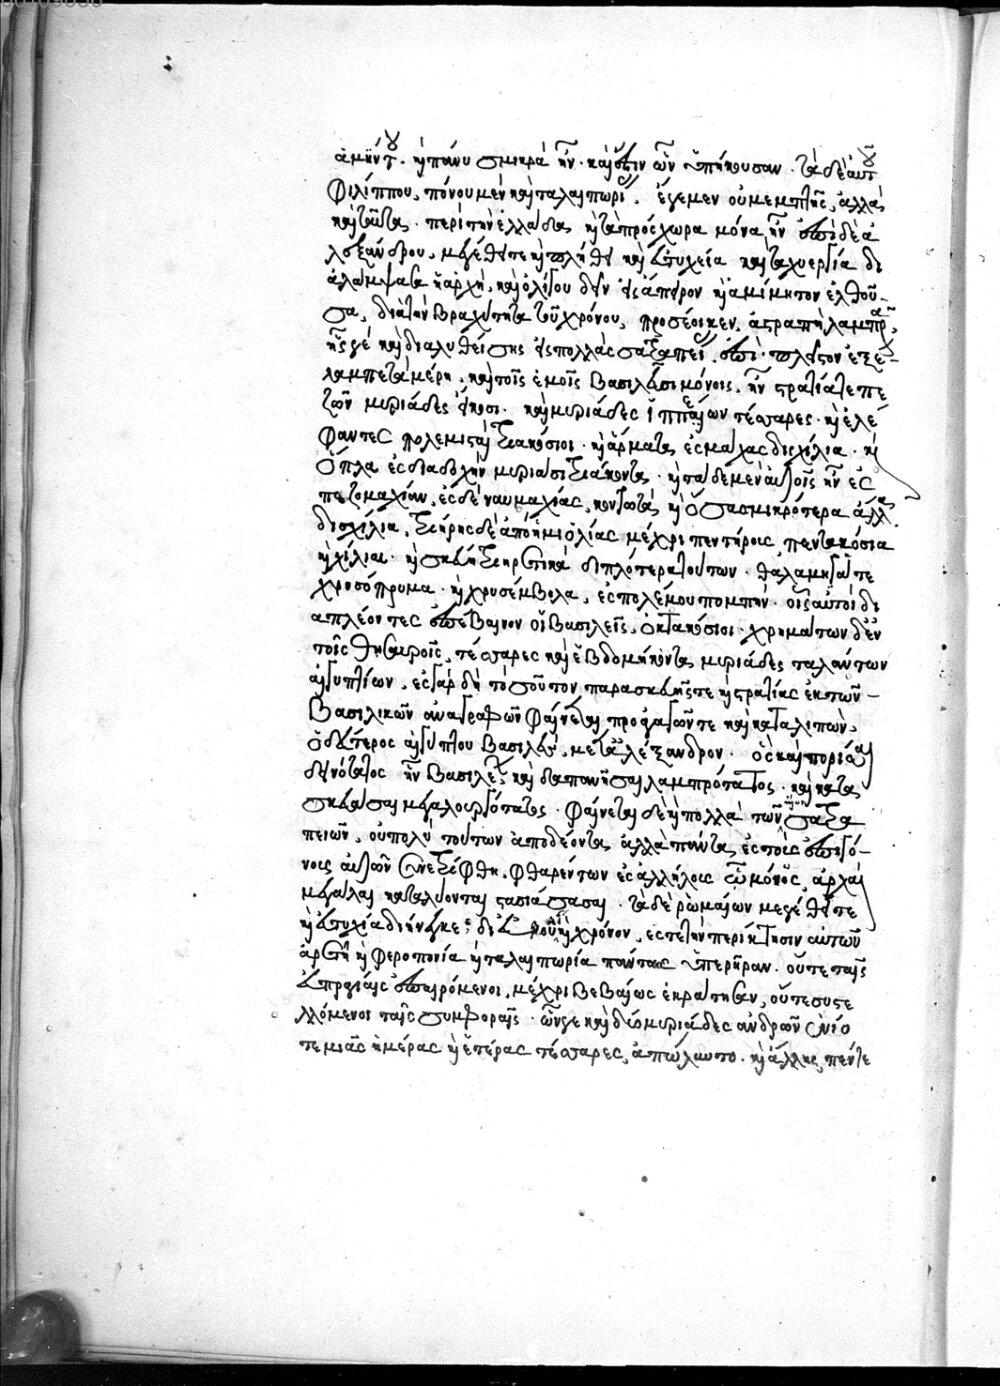 ἀμύντου. ἢ πάνυ σμικρὰ ἦν. καὶ ἔστιν ὧν ὑπήκουσαν. τὰ δὲ αὐτοῦ
φιλίππου, πόνου μὲν καὶ ταλαιπωρίας, ἔγεμεν οὐ μεμπτῆς, ἀλλὰ
καὶ ταῦτα. περὶ τὴν ἑλλάδα καὶ τὰ πρόσχωρα μόνα ἦν. ἐπὶ δὲ ἀ
λεξάνδρου, μεγέθει τε καὶ πλήθει καὶ εὐτυχεία καὶ ταχυεργία δι
αλάμψασα ἡ ἀρχὴ, καὶ ὀλίγου δεῖν εἰς ἄπειρον καὶ ἀμίμητον ἐλθοῦ-
σα, διὰ τὴν βραχύτητα τοῦ χρόνου, προσέοικεν, ἀστραπῇ λαμπρᾷ,
ἧς γε καὶ διαλυθείσης εἰς πολλὰς σατραπείας, ἐπὶ πλεῖστον ἐξέ-
λαμπε τὰ μέρη. καὶ τοῖς ἐμοῖς βασιλεῦσι μόνοις, ἦν στρατιά τε πε
ζῶν μυριάδες εἴκοσι. καὶ μυριάδες ἱππέων τέσσαρες. καὶ ἐλέ
φαντες πολεμισταὶ τριακόσιοι. καὶ ἅρματα ἐς μάχας δισχίλια. καὶ
ὅπλα ἐς διαδοχὴν μυριάσι τριάκοντα. καὶ τάδε μὲν αὐτοῖς ἦν ἐς
πεζομαχίαν, ἐς δὲ ναυμαχίας, κοντωτὰ καὶ ὅσα σμικρότερα ἄλλα
δισχίλια, τριήρεις δὲ ἀπὸ ἡμιολίας μέχρι πεντήρους, πεντακόσια
καὶ χίλιαι. καὶ σκεύη τριηρετικὰ διπλότερα τούτων. θαλαμηγά τε
χρυσόπρυμνα. καὶ χρυσέμβολα, ἐς πολέμου πομπὴν. οἷς αὐτοὶ δι
απλέοντες ἐπέβαινον οἱ βασιλεῖς, ὀκτακόσιοι. χρημάτων δ' ἐν
τοῖς θησαυροῖς, τέσσαρες καὶ ἑβδομήκοντα μυριάδες ταλάντων
αἰγυπτίων. ἐς γὰρ δὴ τοσοῦτον παρασκευῆς τε καὶ στρατιᾶς ἐκ τῶν-
βασιλικῶν ἀναγραφῶν φαίνεται προαγαγών τε καὶ καταλιπὼν,
ὁ δεύτερος αἰγύπτου βασιλεὺς, μετὰ ἀλέξανδρον. ὃς καὶ πορίσαι
δεινότατος ἦν βασιλέων καὶ δαπανῆσαι λαμπρότατος. καὶ κατα
σκευάσαι μεγαλουργότατος. φαίνεται δὲ καὶ πολλὰ τῶν ἄλλων σατρα
πειῶν, οὐ πολὺ τούτων ἀποδέοντα ἀλλὰ πάντα ἐς τοὺς ἐπιγό-
νους αὐτῶν συνετρίφθη. φθαρέντων ἐς ἀλλήλους ᾧ μόνως, ἀρχαὶ
μεγάλαι καταλύονται στασιάσασαι. τὰ δὲ ῥωμαίων μεγέθει τε
καὶ εὐτυχία διήνεγκε· δι' εὐβουλίαν καὶ χρόνον, ἔς τε τὴν περίκτησιν αὐτῶν
ἀρετῇ καὶ φερεπονία καὶ ταλαιπωρία πάντας ὑπερῆραν. οὔτε ταῖς
εὐπραγίαις ἐπαιρόμενοι, μέχρι βεβαίως ἐκράτησαν, οὔτε συστε
λλόμενοι ταῖς συμφοραῖς. ὧν γε καὶ δύο μυριάδες ἀνδρῶν ἐνίο
τε μιᾶς ἡμέρας καὶ ἑτέρας τέσσαρες, ἀπώλλυντο. καὶ ἄλλης πέντε